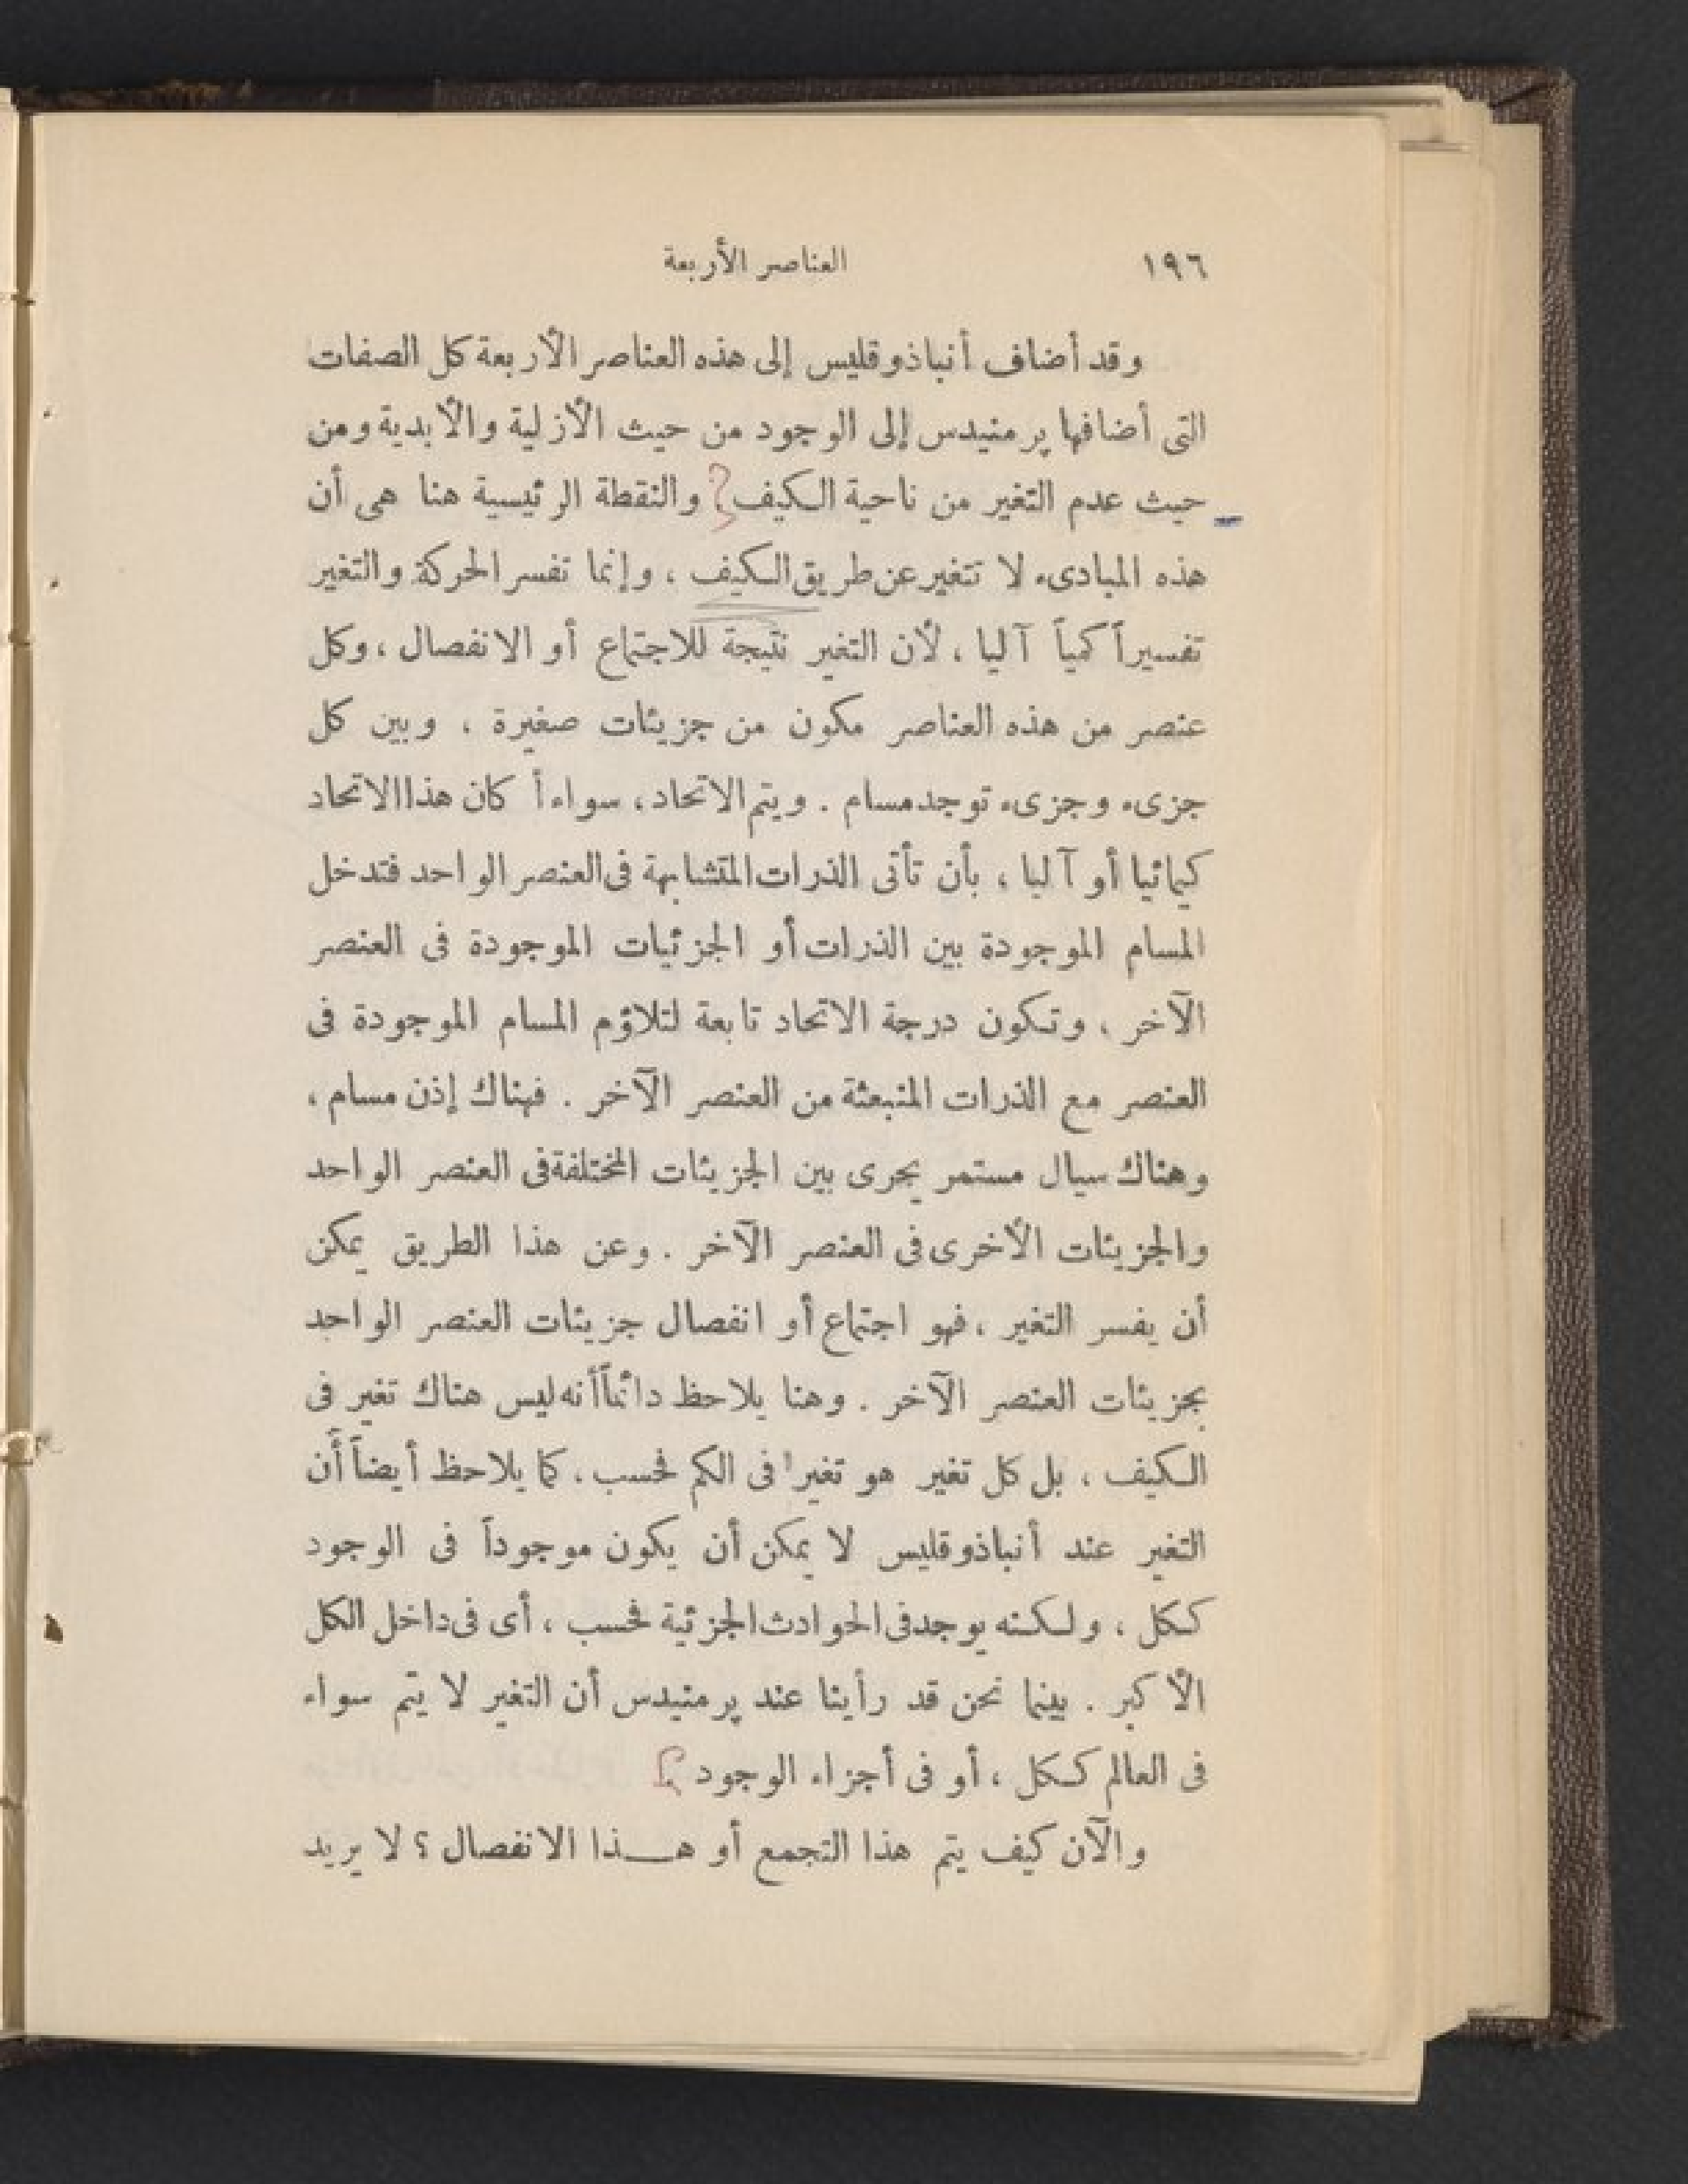 ١٩٦ العناصر الأربعة
وقد أضاف أنباذوقليس إلى هذه العناصر الأربعة كل الصفات
التى أضافها پرمنيدس إلى الوجود من حيث الأزلية والأبدية ومن
حيث عدم التغير من ناحية الكيف والنقطة الرئيسية هنا هى أن
هذه المبادىء لا تتغير عن طريق الكيف ، وإنما تفسر الحركة والتغير
تفسيراً كمياً آليا ، لأن التغير نتيجة للاجتماع أو الانفصال ، وكل
عنصر من هذه العناصر مكون من جزيئات صغيرة ، وبين كل
جزىء وجزىء توجد مسام . ويتم الاتحاد ، سواءاً كان هذا الاتحاد
كيمائيا أو آليا ، بأن تأتى الذرات المتشابهة فى العنصر الواحد فتدخل
المسام الموجودة بين الذرات أو الجزئيات الموجودة فى العنصر
الآخر ، وتكون درجة الاتحاد تابعة لتلاؤم المسام الموجودة فى
العنصر مع الذرات المنبعثة من العنصر الآخر . فهناك إذن مسام ،
وهناك سيال مستمر يجرى بين الجزيئات المختلفة فى العنصر الواحد
والجزيئات الأخرى فى العنصر الآخر . وعن هذا الطريق يمكن
أن يفسر التغير ، فهو اجتماع أو انفصال جزيئات العنصر الواحد
بجزيئات العنصر الآخر . وهنا يلاحظ دائماً أنه ليس هناك تغير فى
الكيف ، بل كل تغير هو تغير فى الكم فحسب ، كما يلاحظ أيضاً أن
التغير عند أنباذوقليس لا يمكن أن يكون موجوداً فى الوجود
ككل ، ولكنه يوجد فى الحوادث الجزئية فحسب ، أى فى داخل الكل
الأكبر . بينما نحن قد رأينا عند پرمنيدس أن التغير لا يتم سواء
فى العالم ككل ، أو فى أجزاء الوجود
والآن كيف يتم هذا التجمع أو هــذا الانفصال ؟ لا يريد